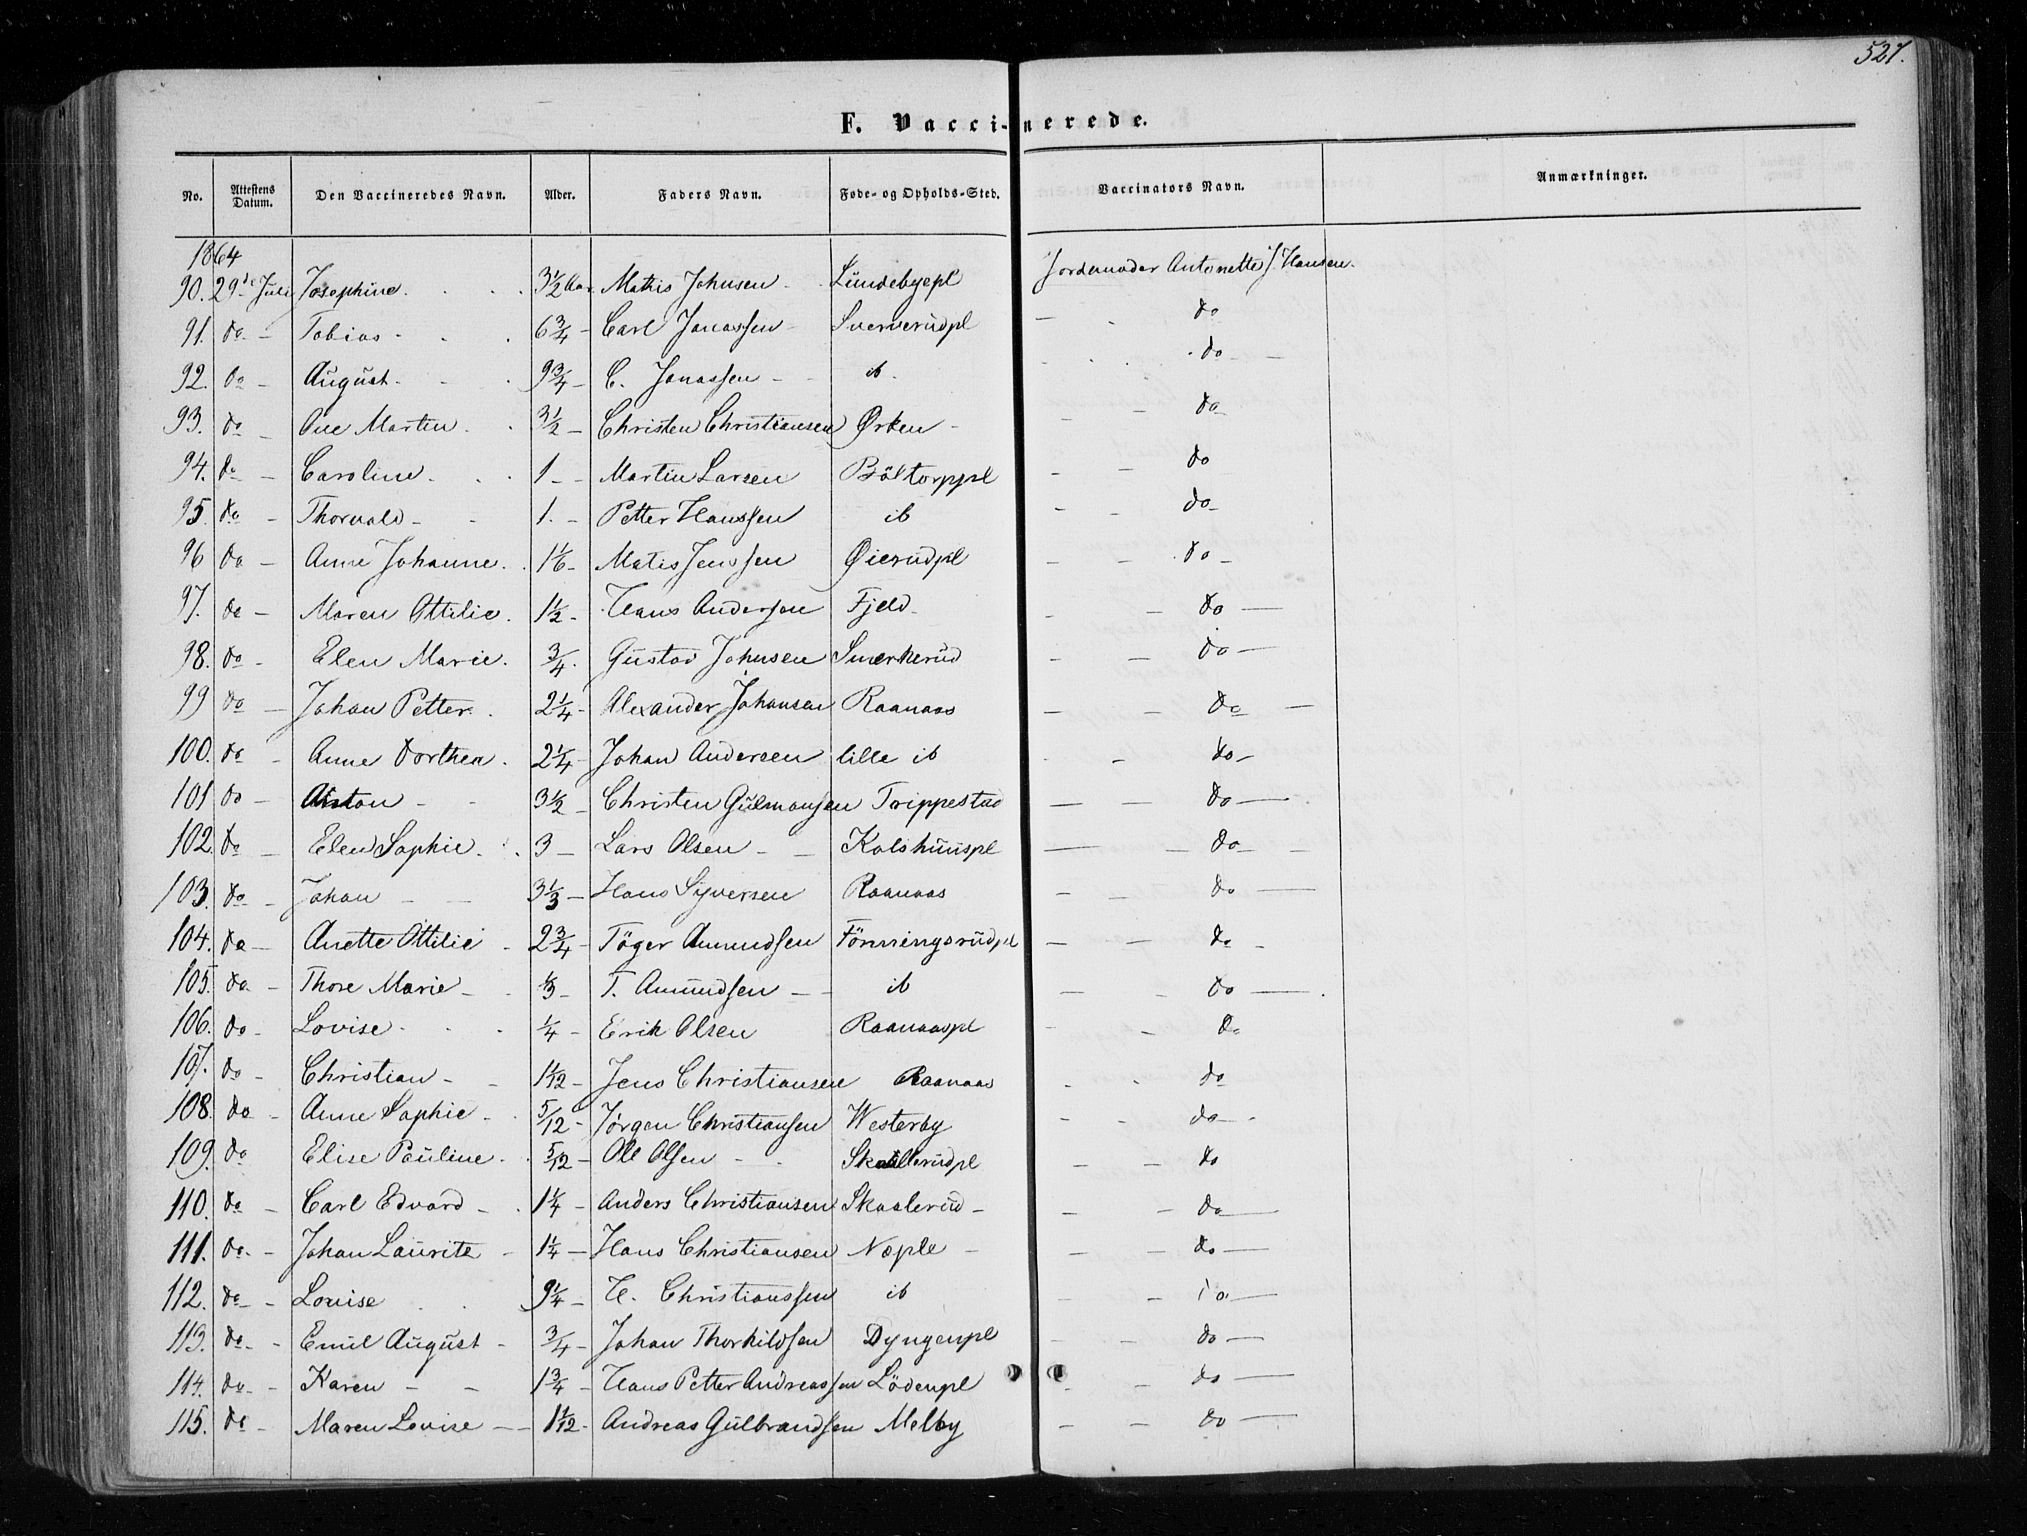 527.
F. Vaccinerede.
No. Attestens Datum. Den Vaccineredes Navn. Alder. Faders Navn. Føde- og Opholds-Sted. Vaccinators Navn. Anmærkninger.
1864
90. 29de Juli Josephine. 3 1/2 Aar Mathis Johnsen - Lundebyepl Jordemoder Antonette J. Hansen.
91. do - Tobias - 6 3/4 - Carl Jonassen - Sververudpl do
92. do - August. 9 3/4 - C. Jonassen - ib - do -
93. do - Ane Martin - 3 1/2 - Christen Christiansen Ørken - do
94. do - Caroline. 1 - - Martin Larsen Böltorppl do
95. do - Thorvald - 1. - Petter Hanssen ib do
96 do - Anne Johanne. 1 1/6 - Matis Jenssen Øierudpl do -
97. do - Maren Ottilie. 1 1/2 - Hans Andersen Fjeld - do -
98. do - Elen Marie. 3/4 - Gustav Johnsen Smerkerud do -
99 do - Johan Petter. 2 1/4 - Alexander Johansen Raanaas do -
100. do - Anne Dorthea. 2 1/4 - Johan Andersen lille ib do -
101 do - Anton - 3 1/2 - Christen Gulmansen Trippestad do -
102. do - Elen Sophie. 3 - Lars Olsen - Kolshuuspl do -
103. do - Johan - 3 1/3 - Hans Syversen Raanaas do -
104. do - Anette Ottilie - 2 3/4 - Töger Amundsen Fönningsrudpl do -
105. do - Thore Marie - 1/3 - T. Amundsen - ib do -
106. do - Lovise - 1/4 - Erik Olsen Raanaaspl do
107. do - Christian - 1 1/12 - Jens Christiansen Raanaas do
108. do - Anne Sophie - 5/12 - Jørgen Christiansen Westerby do -
109. do Elise Pauline. 5/12 - Ole Olsen - Skallerudpl do
110. do - Carl Edvard - 1 1/4 - Anders Christiansen Skaalerud - do -
111. do - Johan Lauritz - 1 1/4 - Hans Christiansen Næple - do -
112. do - Louise 9 1/4 - H. Christianssen ib do -
113. do - Emil August - 3/4 - Johan Thorkildsen Dyngenpl do -
114. do - Karen - 1 3/4 - Hans Petter Andreassen Lödenpl do -
115. do - Maren Lovise - 1 1/12 - Andreas Gulbrandsen Melby do -